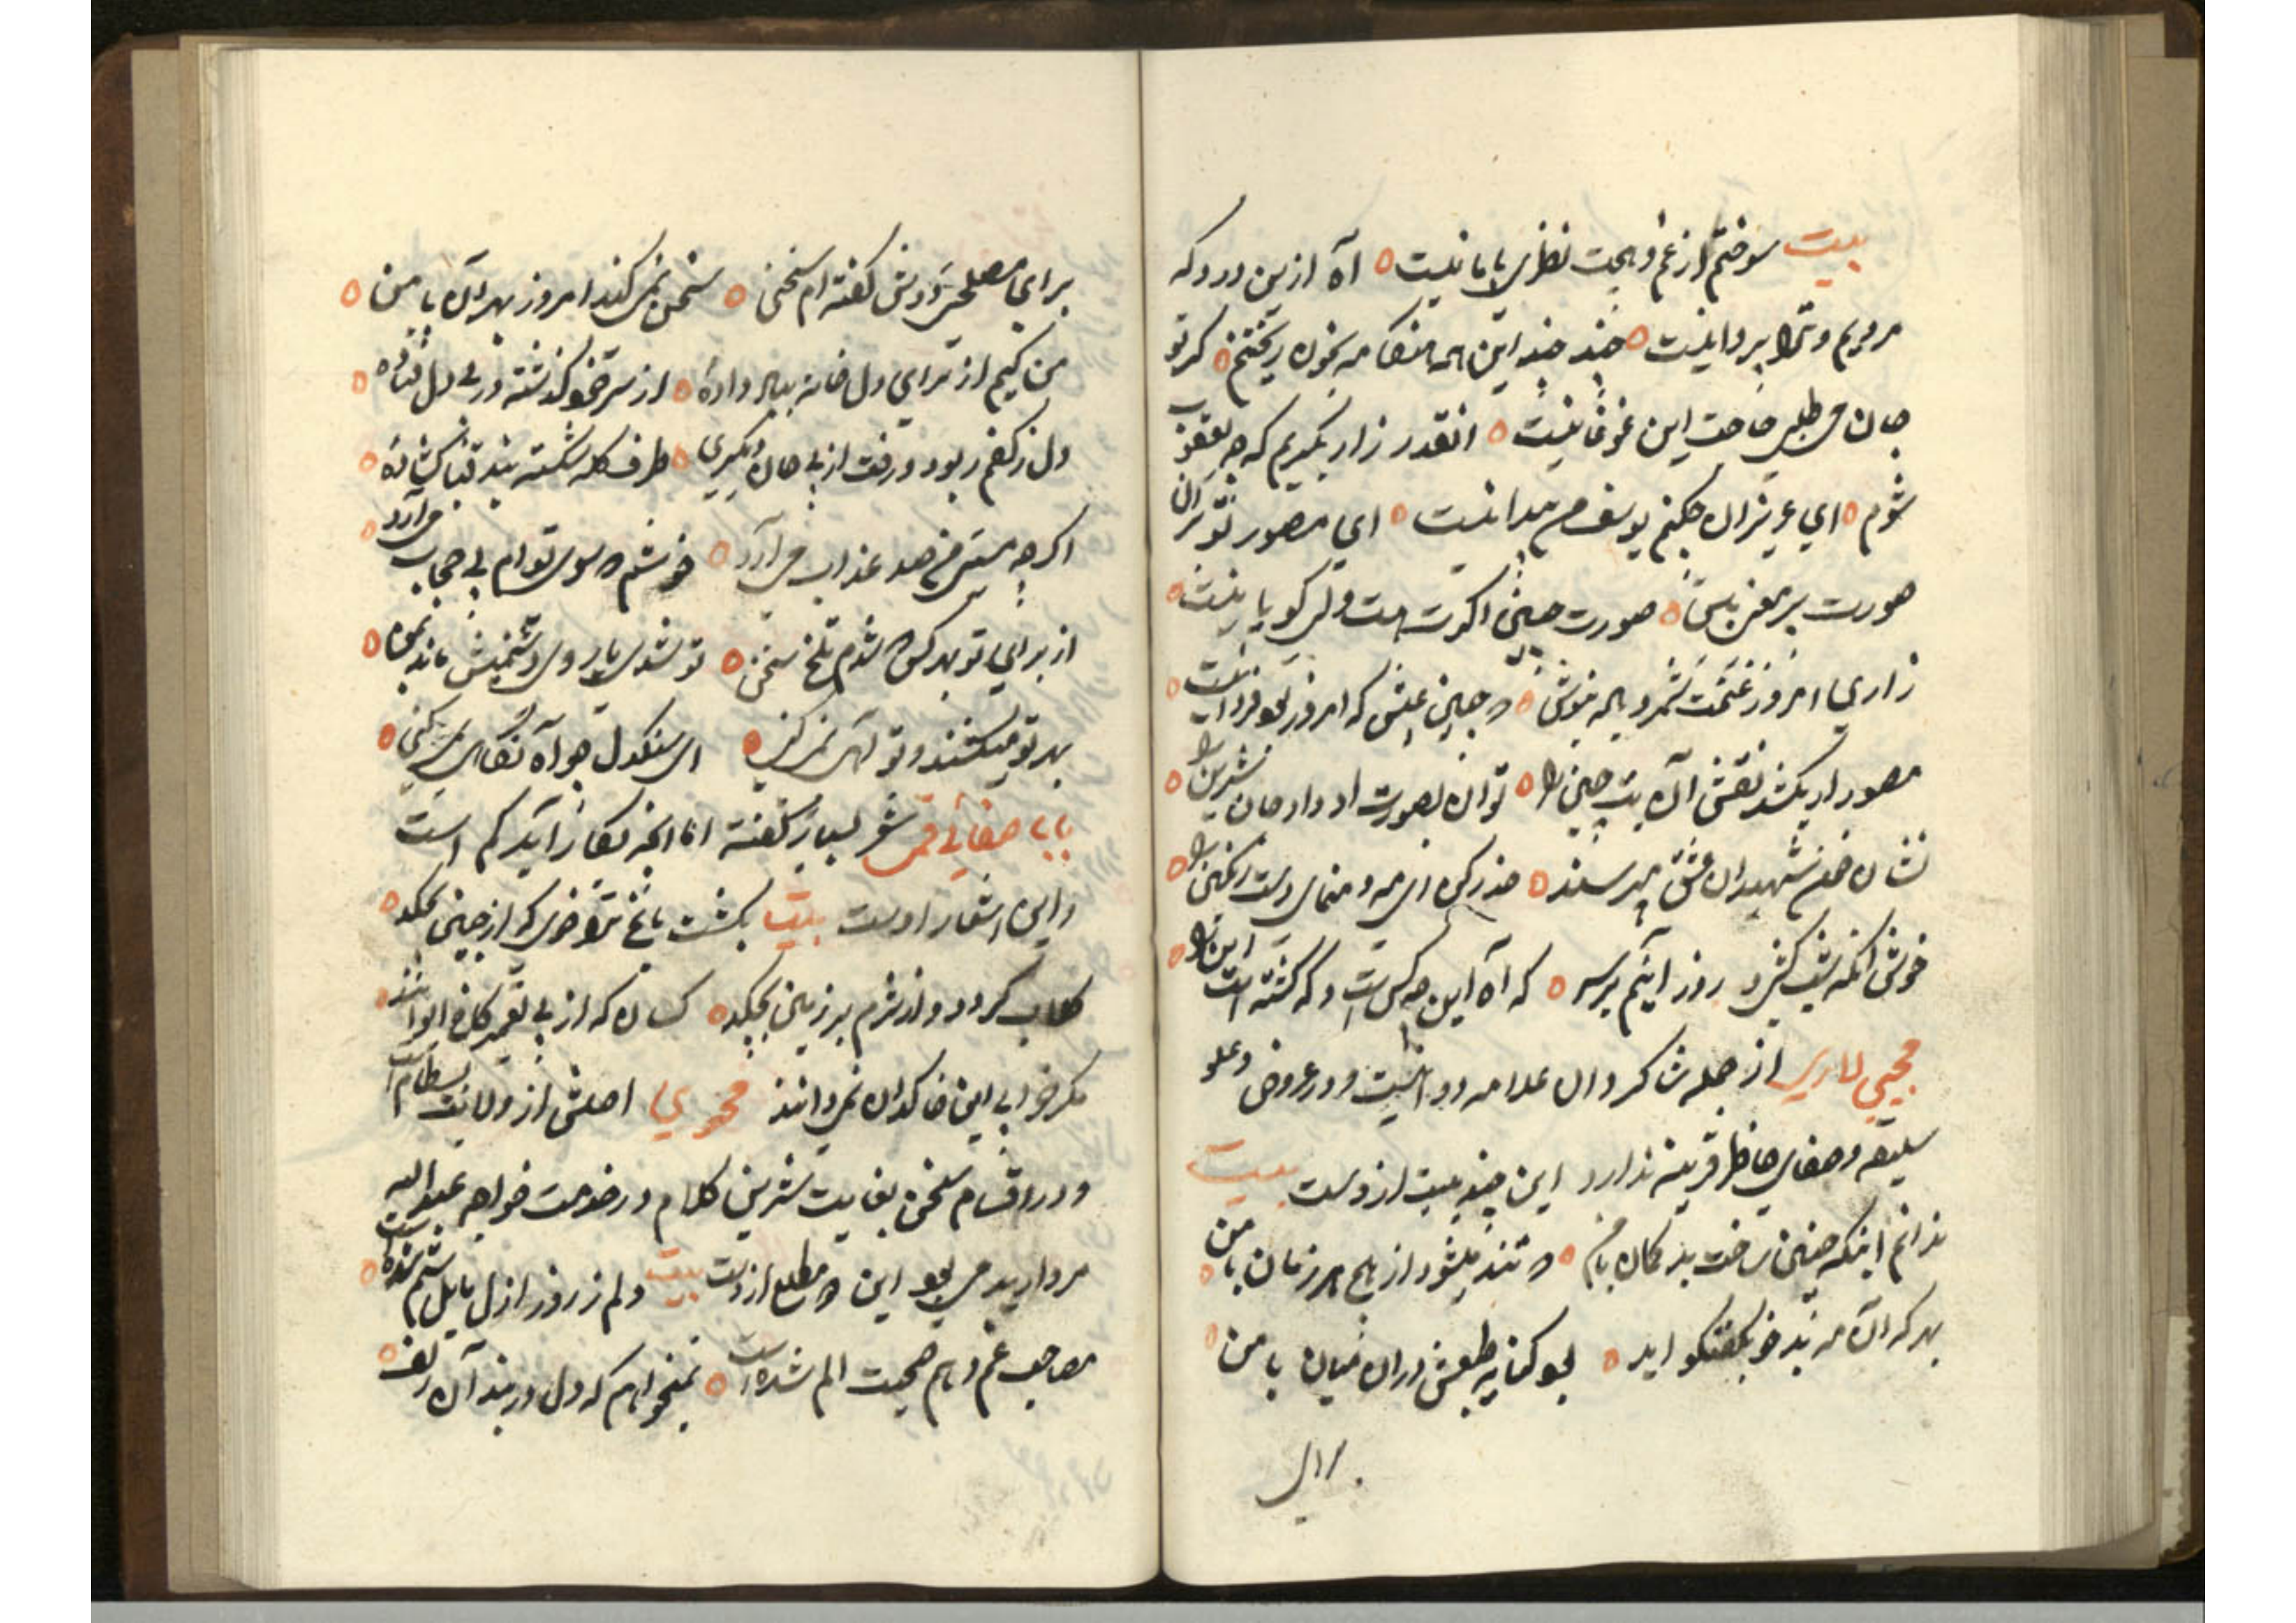 بیت سوختم از غم و هیچت نظری با ما نیست ه آه ازین درد که
مردیم و ترا پروا نیست ه چند چند این همه هنکامه بخون ریختنم ه کر تو
جان می طلبی حاجت این غوغا نیست ه انقدر زار بکریم که چو یعقوب
شوم ه ای عزیزان چکنم یوسف من پیدا نیست ه ای مصور تو بران
صورت بی معنی ه صورت چینی اکرت هست ولی کویا نیست ه
زاری امروز غنیمت شمر و باله بنوش ه که امروز بود فردا نیست ه
مصور ار بکشد نقش آن بت چین را ه توان بصورت او داد جان شیرین را ه
نشان خون شهیدان عشق می پرسند ه حذر کن ای مه و منمای دست رنکین را ه
خوش انکه شب کشی و روز آییم بر سر ه که آه این چه کس است و که کشته است این را ه
محیی لاری از جمله شاکردان علامه دوانیست و در عروض و علو
سلیقه و صفای خاطر قرینه ندارد این چند بیت ازوست بیت
ندانم اینکه چنین ساخت بدکمان بامن ه که تند میشود از هیچ هر زمان با من ه
بهر که آن مه بدخو بکفتکو اید ه بود کنایه طعنش دران میان با من ه
برای
برای مصلحتی کفته ام سخنی ه سخن نمی کند امروز بهر آن با من ه
من کیم از برای دل خانه بباد دادهٔ ه از سر خود کذشته در پی دل فتاده ه
دل ز کفم ربود و رفت از پی جان دیکری ه طرف کله شکسته بند قبا کشادهٔ ه
اکر چه مستی من صد عذاب می آرد ه خوشم که سوی توام بی حجاب می آرد ه
از برای تو بهر کس که شدم تلخ سخن ه تو شدی یار وی و دشمنیش ماند بمن ه
بهر تو میکشند و تو نمی کنی ه ای سنکدل چو آه نکاهی نمی کنی ه
بابا صفائی قمی شعر بسیار کفته اما انچه بکار آید کم است
و این اشعار اوست بیت بکشت باغ ترا خوی که از جبین بچکد ه
کلاب کردد و از شرم بر زمین بچکد ه کسان که از پی تعمیر کاخ و ایوانند ه
مکر خرابی این خاکدان نمی دانند محوی اصلش از ولایت بسطام است
و در اقسام سخن بغایت شیرین کلام در خدمت خواجه عبدالله
مروارید می بود این مطلع ازوست بیت دلم ز روز ازل مایل ستم شده است ه
مصاحب غم و هم صحبت الم شده است ه نمیخواهم که دل در بند آن زلف ه